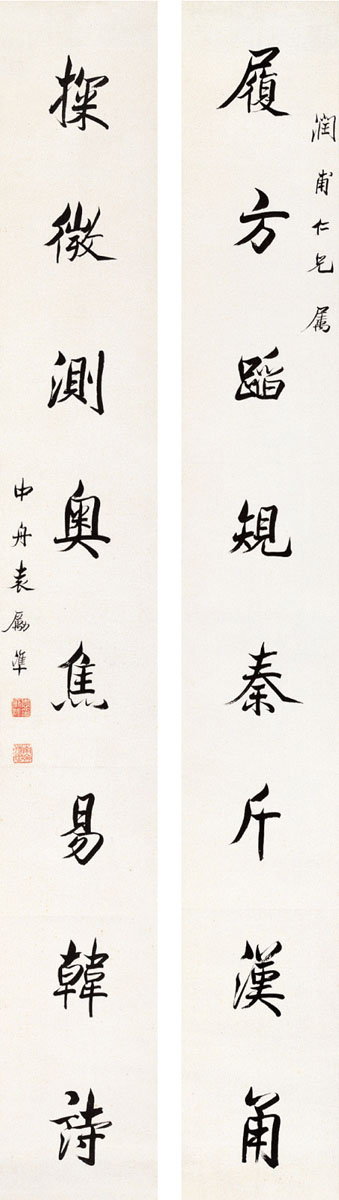 潤甫仁兄属
履方蹈規秦斤漢甬
探微測奥焦易韓詩
中舟袁勵準